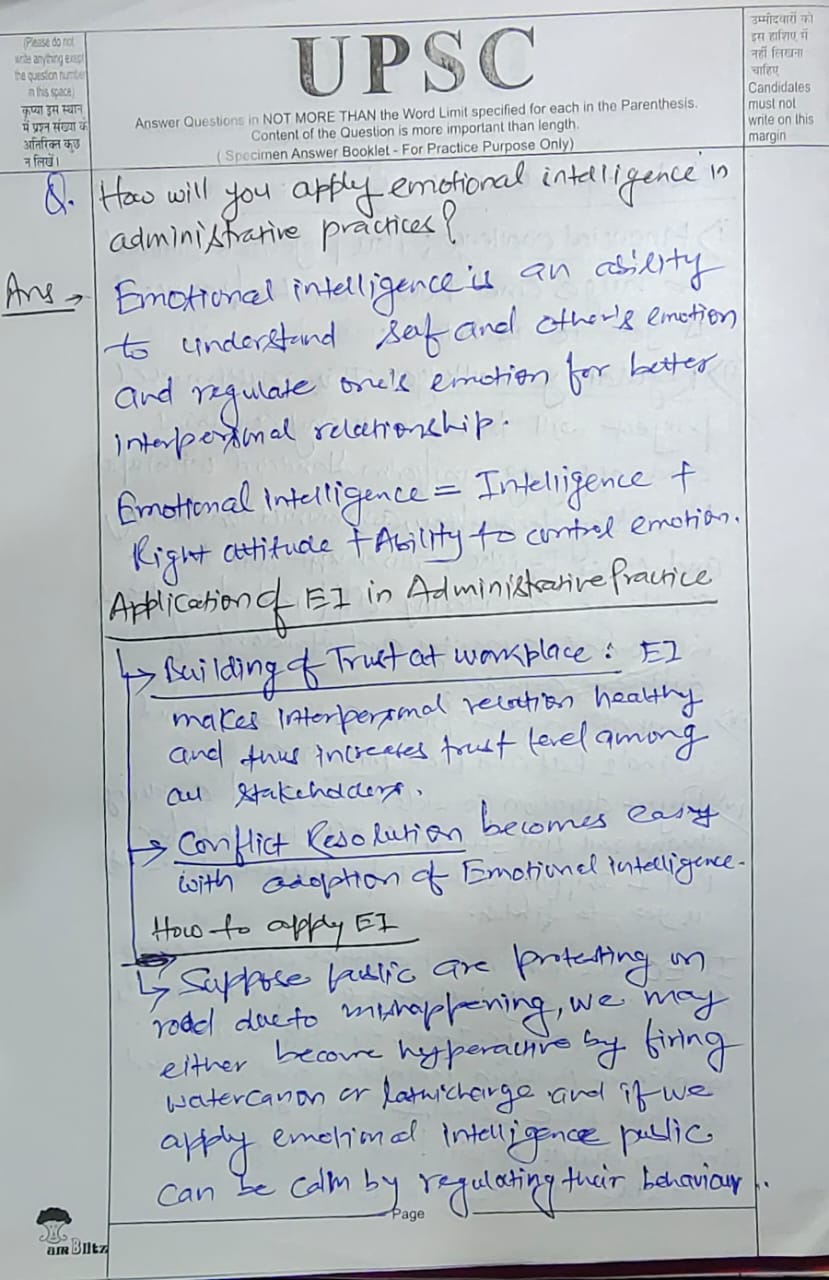 (Please do not
write anything except
the question number
in this space)
कृप्या इस स्थान
में प्रश्न संख्या के
अतिरिक्त कुछ
न लिखें।
UPSC
Answer Questions in NOT MORE THAN the Word Limit specified for each in the Parenthesis.
Content of the Question is more important than length.
( Specimen Answer Booklet - For Practice Purpose Only)
उम्मीदवारों को
इस हाशिए में
नहीं लिखना
चाहिए
Candidates
must not
write on this
margin
Q. How will you apply emotional intelligence in
administrative practices?
Ans → Emotional intelligence is an ability
to understand self and other's emotion
and regulate one's emotion for better
interpersonal relationship.
Emotional Intelligence = Intelligence +
Right attitude + Ability to control emotion.
Application of EI in Administrative Practice
→ Building of Trust at workplace : EI
makes interpersonal relation healthy
and thus increases trust level among
all stakeholders.
→ Conflict Resolution becomes easy
with adoption of Emotional intelligence.
How to apply EI
↳ Suppose public are protesting on
road due to mishappening, we may
either become hyperactive by firing
watercanon or lathicharge and if we
apply emotional intelligence public
can be calm by regulating their behaviour.
Page
am Blitz